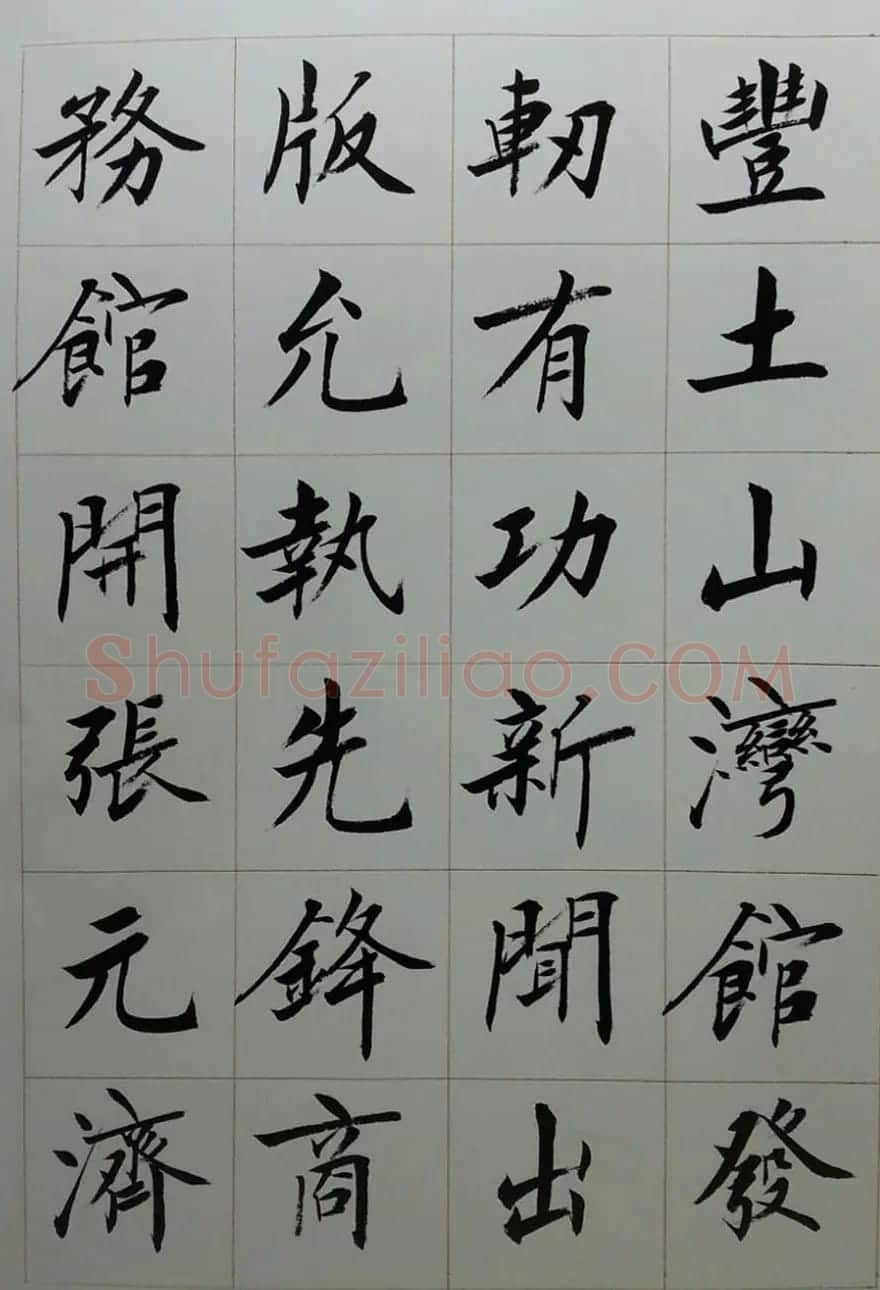 豐土山灣館發
軔有功新聞出
版允執先鋒商
務館開張元濟
Shufaziliao.COM